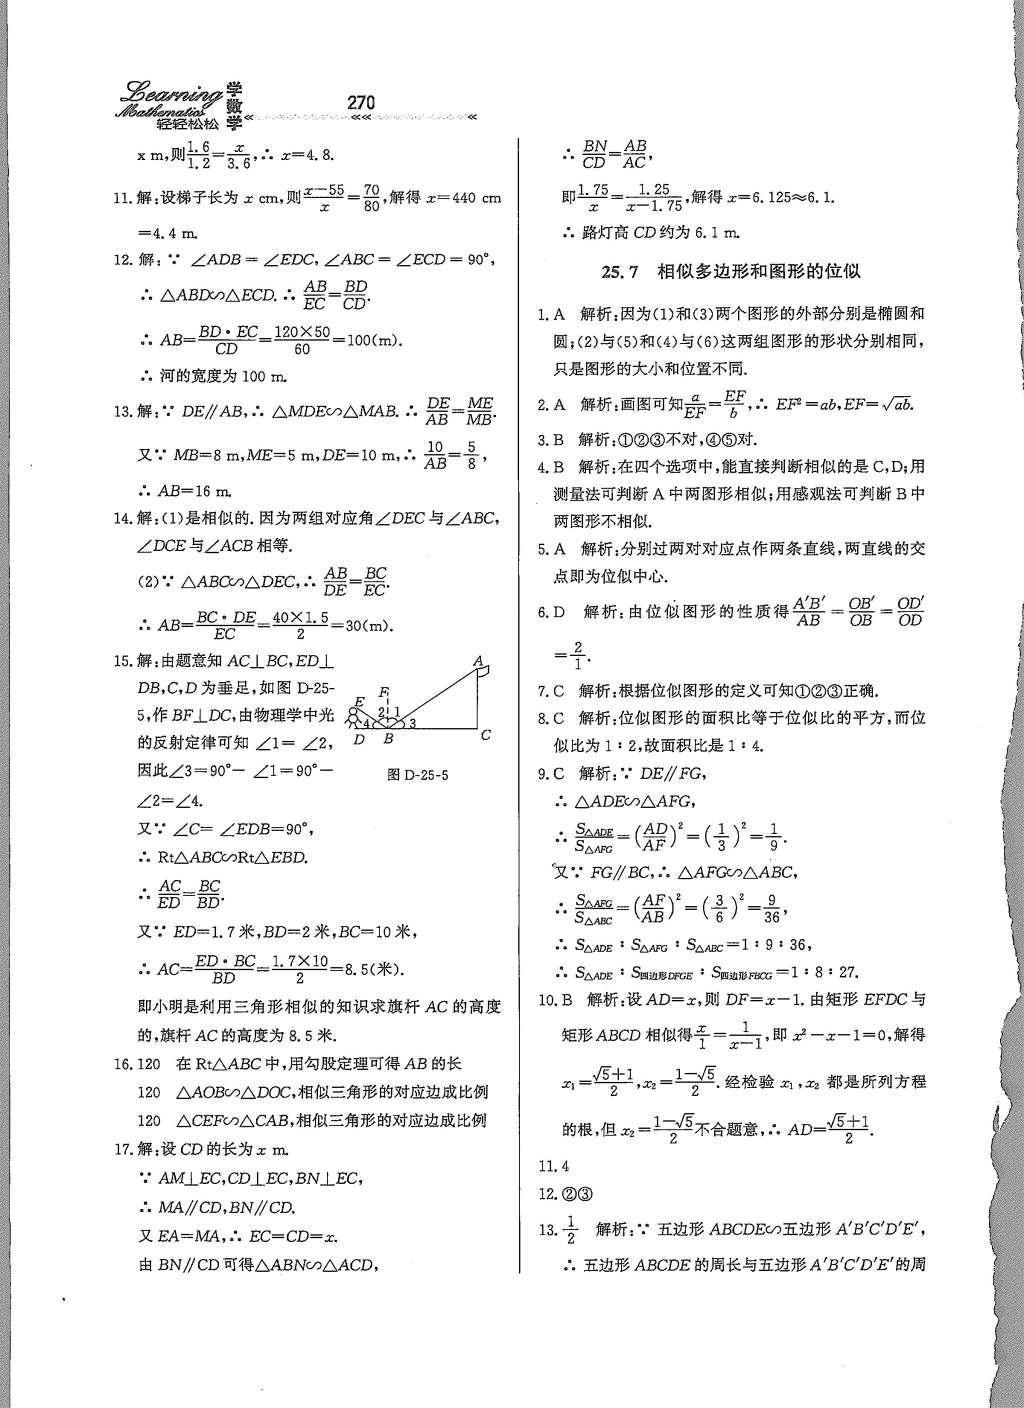 Learning
Mathematics
轻轻松松
学数学
270
x m,则1.6/1.2=x/3.6,∴ x=4.8.
11.解:设梯子长为 x cm,则(x-55)/x=70/80,解得 x=440 cm
=4.4 m.
12.解:∵ ∠ADB=∠EDC,∠ABC=∠ECD=90°,
∴ △ABD∽△ECD.∴ AB/EC=BD/CD.
∴ AB=BD·EC/CD=120×50/60=100(m).
∴ 河的宽度为 100 m.
13.解:∵ DE∥AB,∴ △MDE∽△MAB.∴ DE/AB=ME/MB.
又∵ MB=8 m,ME=5 m,DE=10 m,∴ 10/AB=5/8,
∴ AB=16 m.
14.解:(1)是相似的.因为两组对应角∠DEC与∠ABC,
∠DCE与∠ACB相等.
(2)∵ △ABC∽△DEC,∴ AB/DE=BC/EC.
∴ AB=BC·DE/EC=40×1.5/2=30(m).
15.解:由题意知 AC⊥BC,ED⊥
DB,C,D为垂足,如图 D-25-
5,作BF⊥DC,由物理学中光
的反射定律可知 ∠1=∠2,
因此∠3=90°-∠1=90°-
∠2=∠4.
A
F
E
2 1
4
3
D B
C
图 D-25-5
又∵ ∠C=∠EDB=90°,
∴ Rt△ABC∽Rt△EBD.
∴ AC/ED=BC/BD.
又∵ ED=1.7米,BD=2米,BC=10米,
∴ AC=ED·BC/BD=1.7×10/2=8.5(米).
即小明是利用三角形相似的知识求旗杆 AC 的高度
的,旗杆 AC 的高度为 8.5 米.
16.120 在 Rt△ABC 中,用勾股定理可得 AB 的长
120 △AOB∽△DOC,相似三角形的对应边成比例
120 △CEF∽△CAB,相似三角形的对应边成比例
17.解:设 CD 的长为 x m.
∵ AM⊥EC,CD⊥EC,BN⊥EC,
∴ MA∥CD,BN∥CD.
又 EA=MA,∴ EC=CD=x.
由 BN∥CD可得△ABN∽△ACD,
∴ BN/CD=AB/AC,
即1.75/x=1.25/(x-1.75),解得 x=6.125≈6.1.
∴ 路灯高 CD 约为 6.1 m.
25.7 相似多边形和图形的位似
1.A 解析:因为(1)和(3)两个图形的外部分别是椭圆和
圆;(2)与(5)和(4)与(6)这两组图形的形状分别相同,
只是图形的大小和位置不同.
2.A 解析:画图可知a/EF=EF/b,∴ EF²=ab,EF=√ab.
3.B 解析:①②③不对,④⑤对.
4.B 解析:在四个选项中,能直接判断相似的是 C,D;用
测量法可判断 A 中两图形相似;用感观法可判断 B 中
两图形不相似.
5.A 解析:分别过两对对应点作两条直线,两直线的交
点即为位似中心.
6.D 解析:由位似图形的性质得 A′B′/AB=OB′/OB=OD′/OD
=2/1.
7.C 解析:根据位似图形的定义可知①②③正确.
8.C 解析:位似图形的面积比等于位似比的平方,而位
似比为 1∶2,故面积比是 1∶4.
9.C 解析:∵ DE∥FG,
∴ △ADE∽△AFG,
∴ S△ADE/S△AFG=(AD/AF)²=(1/3)²=1/9.
又∵ FG∥BC,∴ △AFG∽△ABC,
∴ S△AFG/S△ABC=(AF/AB)²=(3/6)²=9/36,
∴ S△ADE∶S△AFG∶S△ABC=1∶9∶36,
∴ S△ADE∶S四边形DFGE∶S四边形FBCG=1∶8∶27.
10.B 解析:设 AD=x,则 DF=x-1.由矩形 EFDC 与
矩形 ABCD 相似得x/1=1/(x-1),即 x²-x-1=0,解得
x₁=(√5+1)/2,x₂=(1-√5)/2.经检验 x₁,x₂ 都是所列方程
的根,但 x₂=(1-√5)/2不合题意,∴ AD=(√5+1)/2.
11.4
12.②③
13.1/2 解析:∵ 五边形 ABCDE∽五边形 A′B′C′D′E′,
∴ 五边形 ABCDE 的周长与五边形 A′B′C′D′E′的周